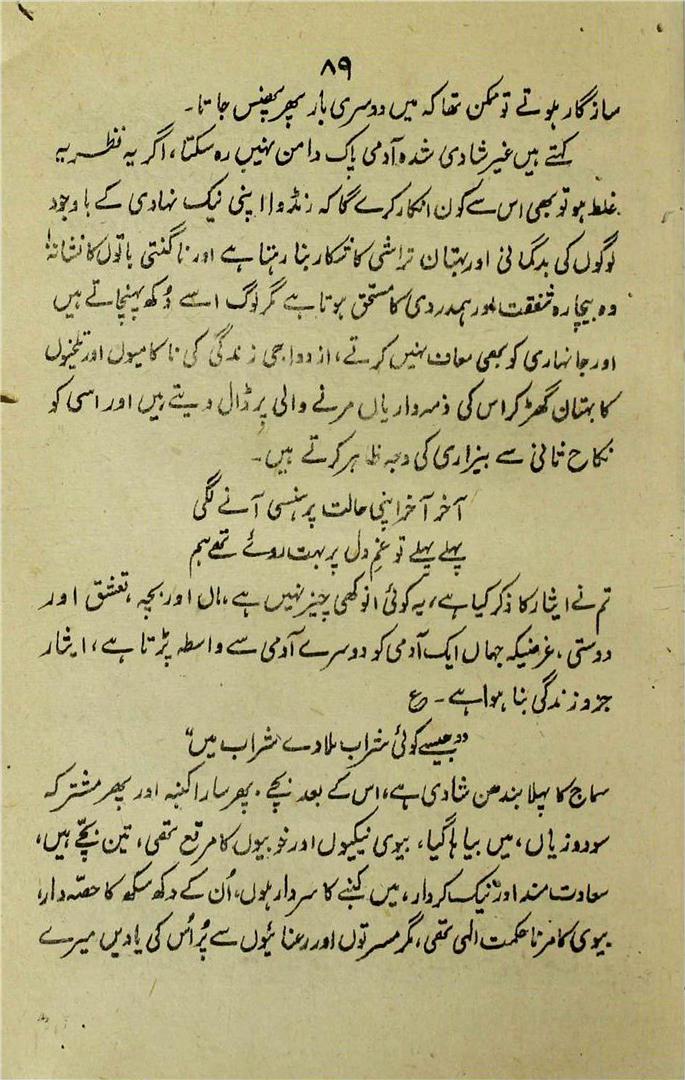 ۸۹
سازگار ہوتے تو ممکن تھا کہ میں دوسری بار پھر پھنس جاتا۔
کہتے ہیں غیر شادی شدہ آدمی پاک دامن نہیں رہ سکتا، اگر یہ نظریہ
غلط ہو تو بھی اس سے کون انکار کرے گا کہ رنڈوا اپنی نیک نہادی کے باوجود
لوگوں کی بدگمانی اور بہتان تراشی کا شکار بنا رہتا ہے اور ناگفتنی باتوں کا نشانہ!
وہ بیچارہ شفقت اور ہمدردی کا مستحق ہوتا ہے مگر لوگ اسے دُکھ پہنچاتے ہیں
اور جانہاری کو بھی معاف نہیں کرتے، ازدواجی زندگی کی ناکامیوں اور تلخیوں
کا بہتان گھڑ کر اس کی ذمہ داریاں مرنے والی پر ڈال دیتے ہیں اور اسی کو
نکاح ثانی سے بیزاری کی وجہ ظاہر کرتے ہیں۔
آخر آخر اپنی حالت پر ہنسی آنے لگی
پہلے پہلے تو غمِ دل پر بہت روئے تھے ہم
تم نے ایثار کا ذکر کیا ہے، یہ کوئی انوکھی چیز نہیں ہے، ماں اور بچہ، تعشق اور
دوستی، غرضیکہ جہاں ایک آدمی کو دوسرے آدمی سے واسطہ پڑتا ہے، ایثار
جزو زندگی بنا ہوا ہے۔ ع
"جیسے کوئی شراب ملا دے شراب میں"
سماج کا پہلا بندھن شادی ہے، اس کے بعد بچے۔ پھر سارا کنبہ اور پھر مشترکہ
سود و زیاں، میں بیاہا گیا، بیوی نیکیوں اور خوبیوں کا مرقع تھی، تین بچّے ہیں،
سعادت مند اور نیک کردار، میں کنبے کا سردار ہوں، اُن کے دکھ سکھ کا حصّہ دار،
بیوی کا مرنا حکمت الٰہی تھی، مگر مسرتوں اور رعنائیوں سے پُر اُس کی یادیں میرے